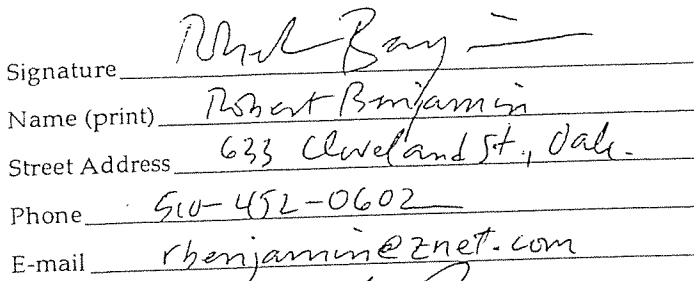 Signature Robert Benjamin
Name (print) Robert Benjamin
Street Address 633 Cleveland St., Oak.
Phone 510-452-0602
E-mail rbenjamin@znet.com